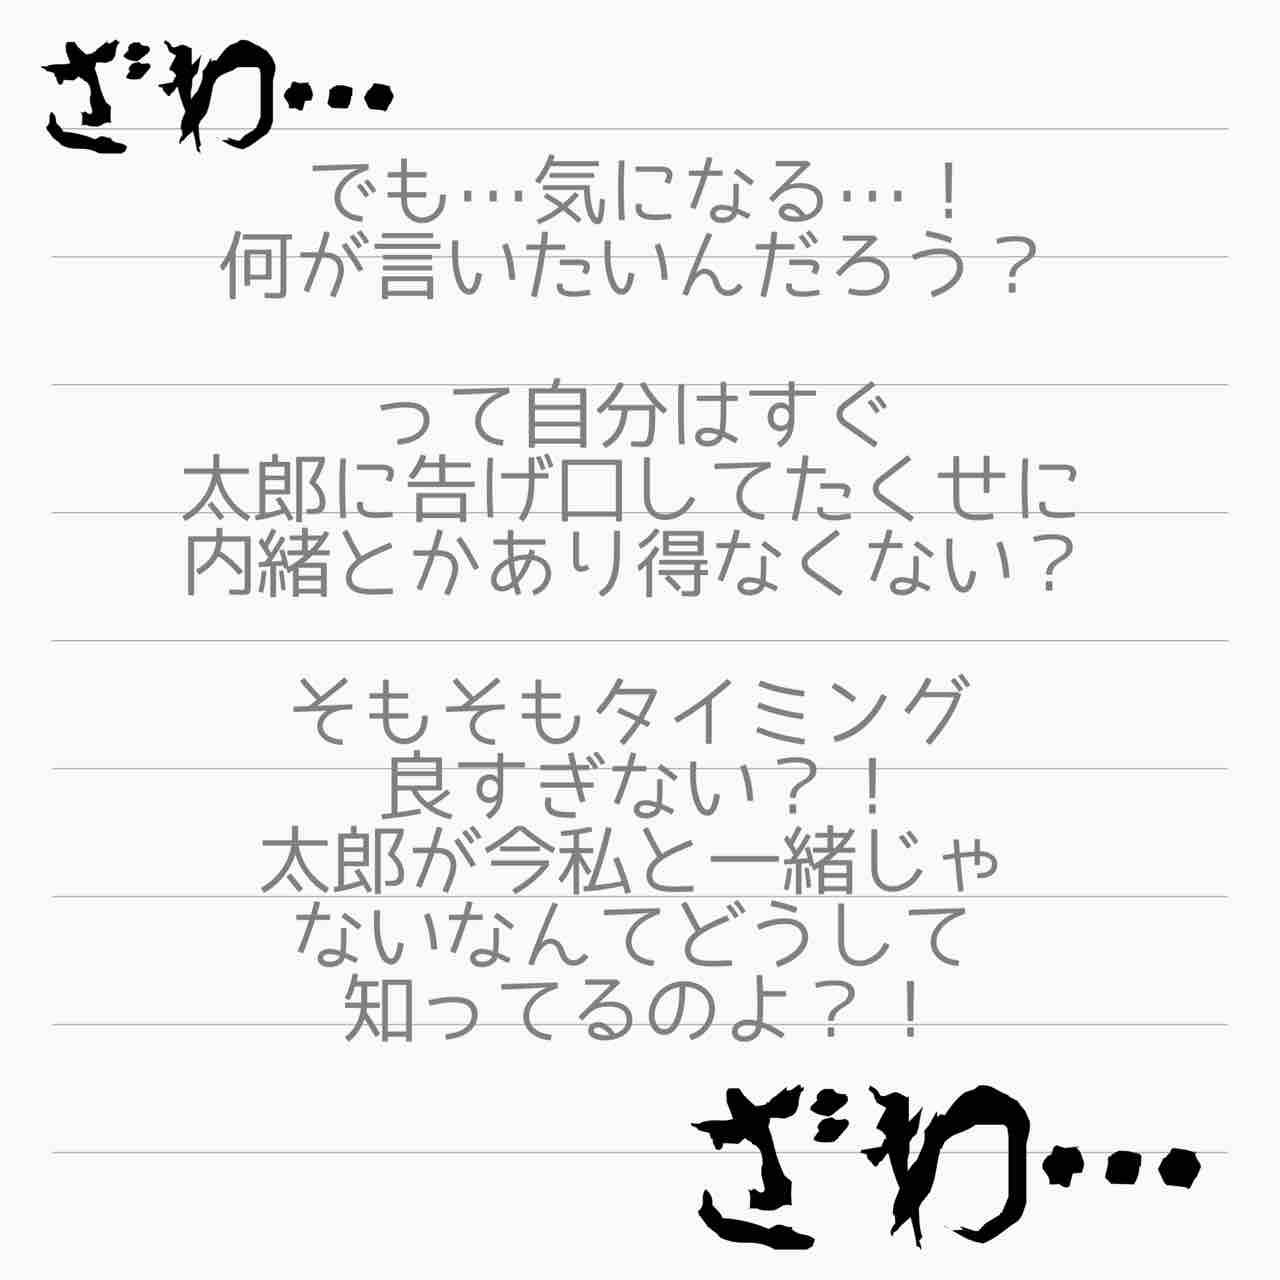 ざわ…
でも…気になる…！
何が言いたいんだろう？
って自分はすぐ
太郎に告げ口してたくせに
内緒とかあり得なくない？
そもそもタイミング
良すぎない？！
太郎が今私と一緒じゃ
ないなんてどうして
知ってるのよ？！
ざわ…